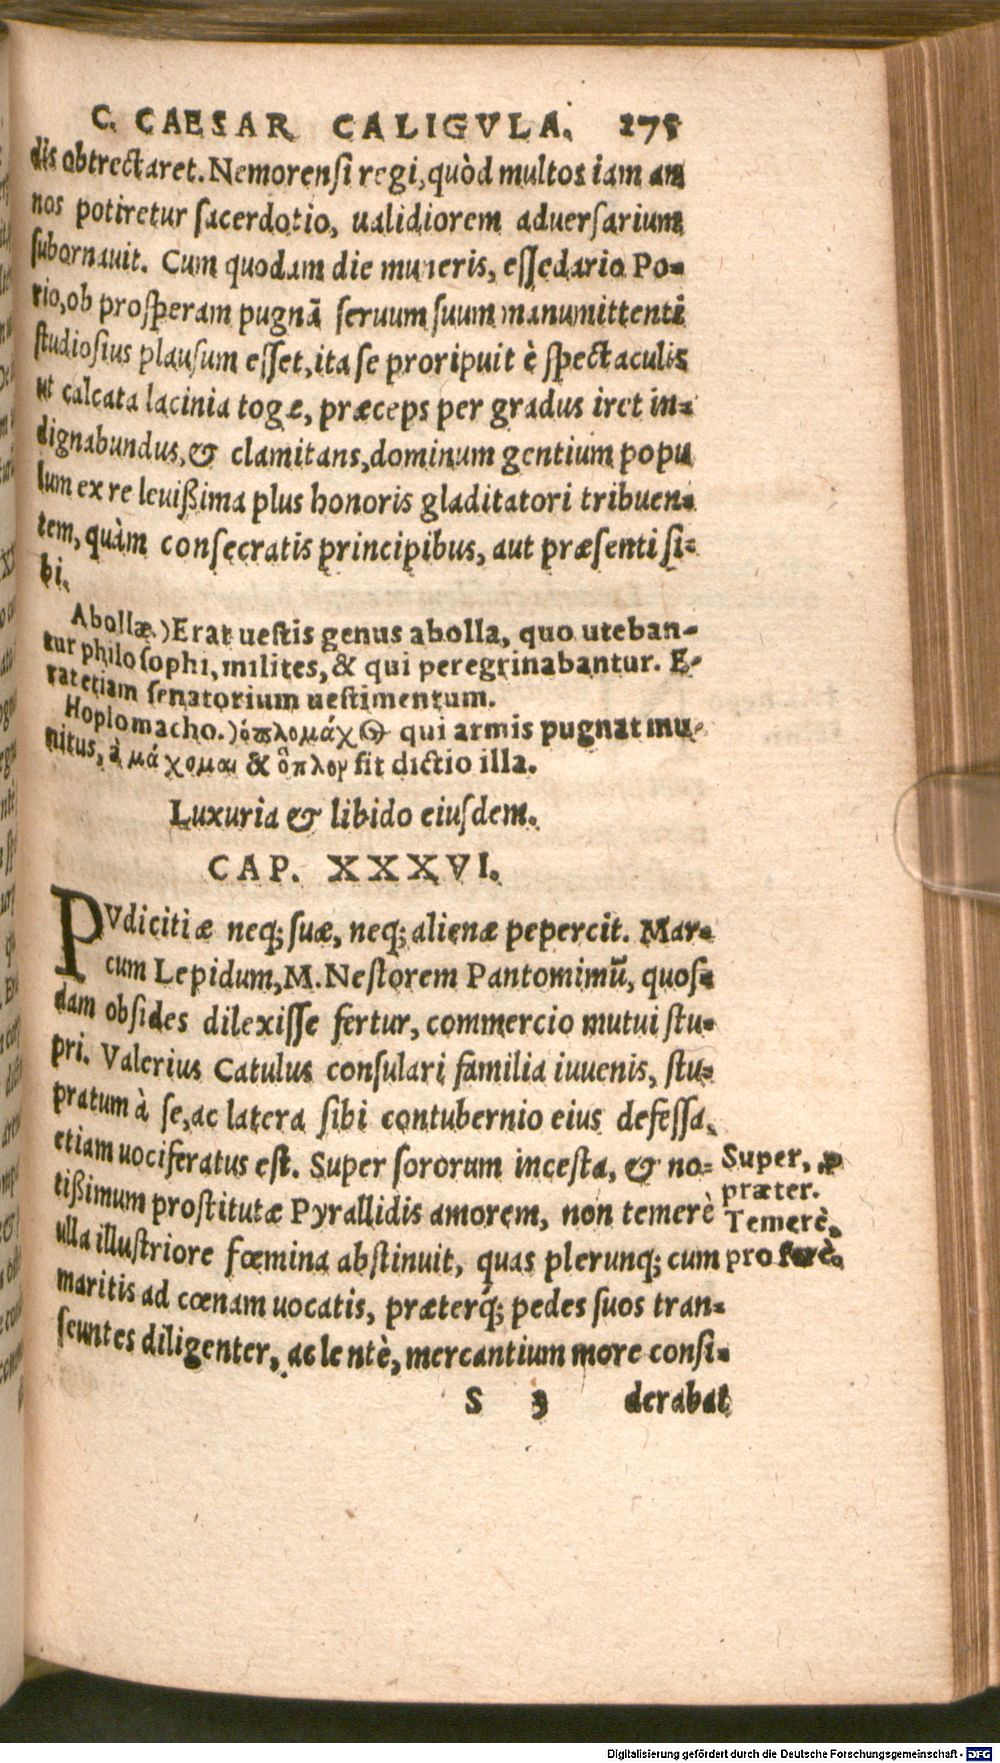 C. CAESAR CALIGVLA. 275
dis obtrectaret. Nemorensi regi, quòd multos iam an
nos potiretur sacerdotio, ualidiorem aduersarium
subornauit. Cum quodam die muneris, essedario Po-
rio, ob prosperam pugnā seruum suum manumittenti
studiosius plausum esset, ita se proripuit è spectaculis
ut calcata lacinia togæ, præceps per gradus iret in-
dignabundus, & clamitans, dominum gentium popu
lum ex re leuißima plus honoris gladitatori tribuen-
tem, quàm consecratis principibus, aut præsenti si-
bi.
Abollæ.) Erat uestis genus abolla, quo uteban-
tur philosophi, milites, & qui peregrinabantur. E-
rat etiam senatorium uestimentum.
Hoplomacho.) ὁπλομάχος qui armis pugnat mu-
nitus, à μάχομαι & ὅπλον fit dictio illa.
Luxuria & libido eiusdem.
CAP. XXXVI.
PVdicitiæ neq; suæ, neq; alienæ pepercit. Mar-
cum Lepidum, M. Nestorem Pantomimū, quos-
dam obsides dilexisse fertur, commercio mutui stu-
pri. Valerius Catulus consulari familia iuuenis, stu-
pratum à se, ac latera sibi contubernio eius defessa,
etiam uociferatus est. Super sororum incesta, & no-
tißimum prostitutæ Pyrallidis amorem, non temerè
ulla illustriore fœmina abstinuit, quas plerunq; cum
maritis ad cœnam uocatis, præterq́; pedes suos tran-
seuntes diligenter, ac lentè, mercantium more consi-
Super, p
præter.
Temerè,
pro ferè.
S 3 derabat
Digitalisierung gefördert durch die Deutsche Forschungsgemeinschaft - DFG